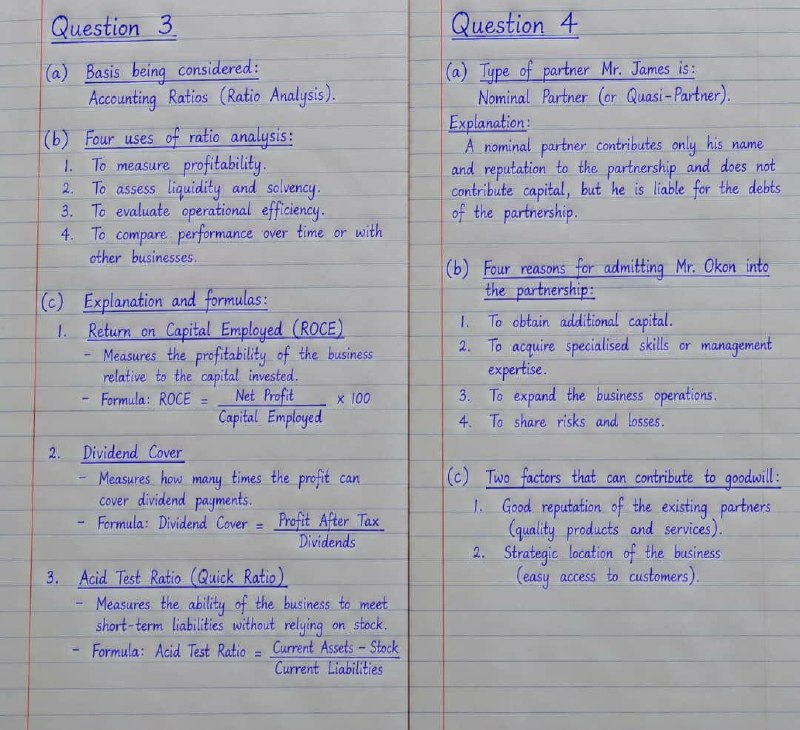 Question 3
(a) Basis being considered:
Accounting Ratios (Ratio Analysis).
(b) Four uses of ratio analysis:
1. To measure profitability.
2. To assess liquidity and solvency.
3. To evaluate operational efficiency.
4. To compare performance over time or with
other businesses.
(c) Explanation and formulas:
1. Return on Capital Employed (ROCE)
- Measures the profitability of the business
relative to the capital invested.
- Formula: ROCE = Net Profit / Capital Employed x 100
2. Dividend Cover
- Measures how many times the profit can
cover dividend payments.
- Formula: Dividend Cover = Profit After Tax / Dividends
3. Acid Test Ratio (Quick Ratio)
- Measures the ability of the business to meet
short-term liabilities without relying on stock.
- Formula: Acid Test Ratio = Current Assets - Stock / Current Liabilities
Question 4
(a) Type of partner Mr. James is:
Nominal Partner (or Quasi-Partner).
Explanation:
A nominal partner contributes only his name
and reputation to the partnership and does not
contribute capital, but he is liable for the debts
of the partnership.
(b) Four reasons for admitting Mr. Okon into
the partnership:
1. To obtain additional capital.
2. To acquire specialised skills or management
expertise.
3. To expand the business operations.
4. To share risks and losses.
(c) Two factors that can contribute to goodwill:
1. Good reputation of the existing partners
(quality products and services).
2. Strategic location of the business
(easy access to customers).